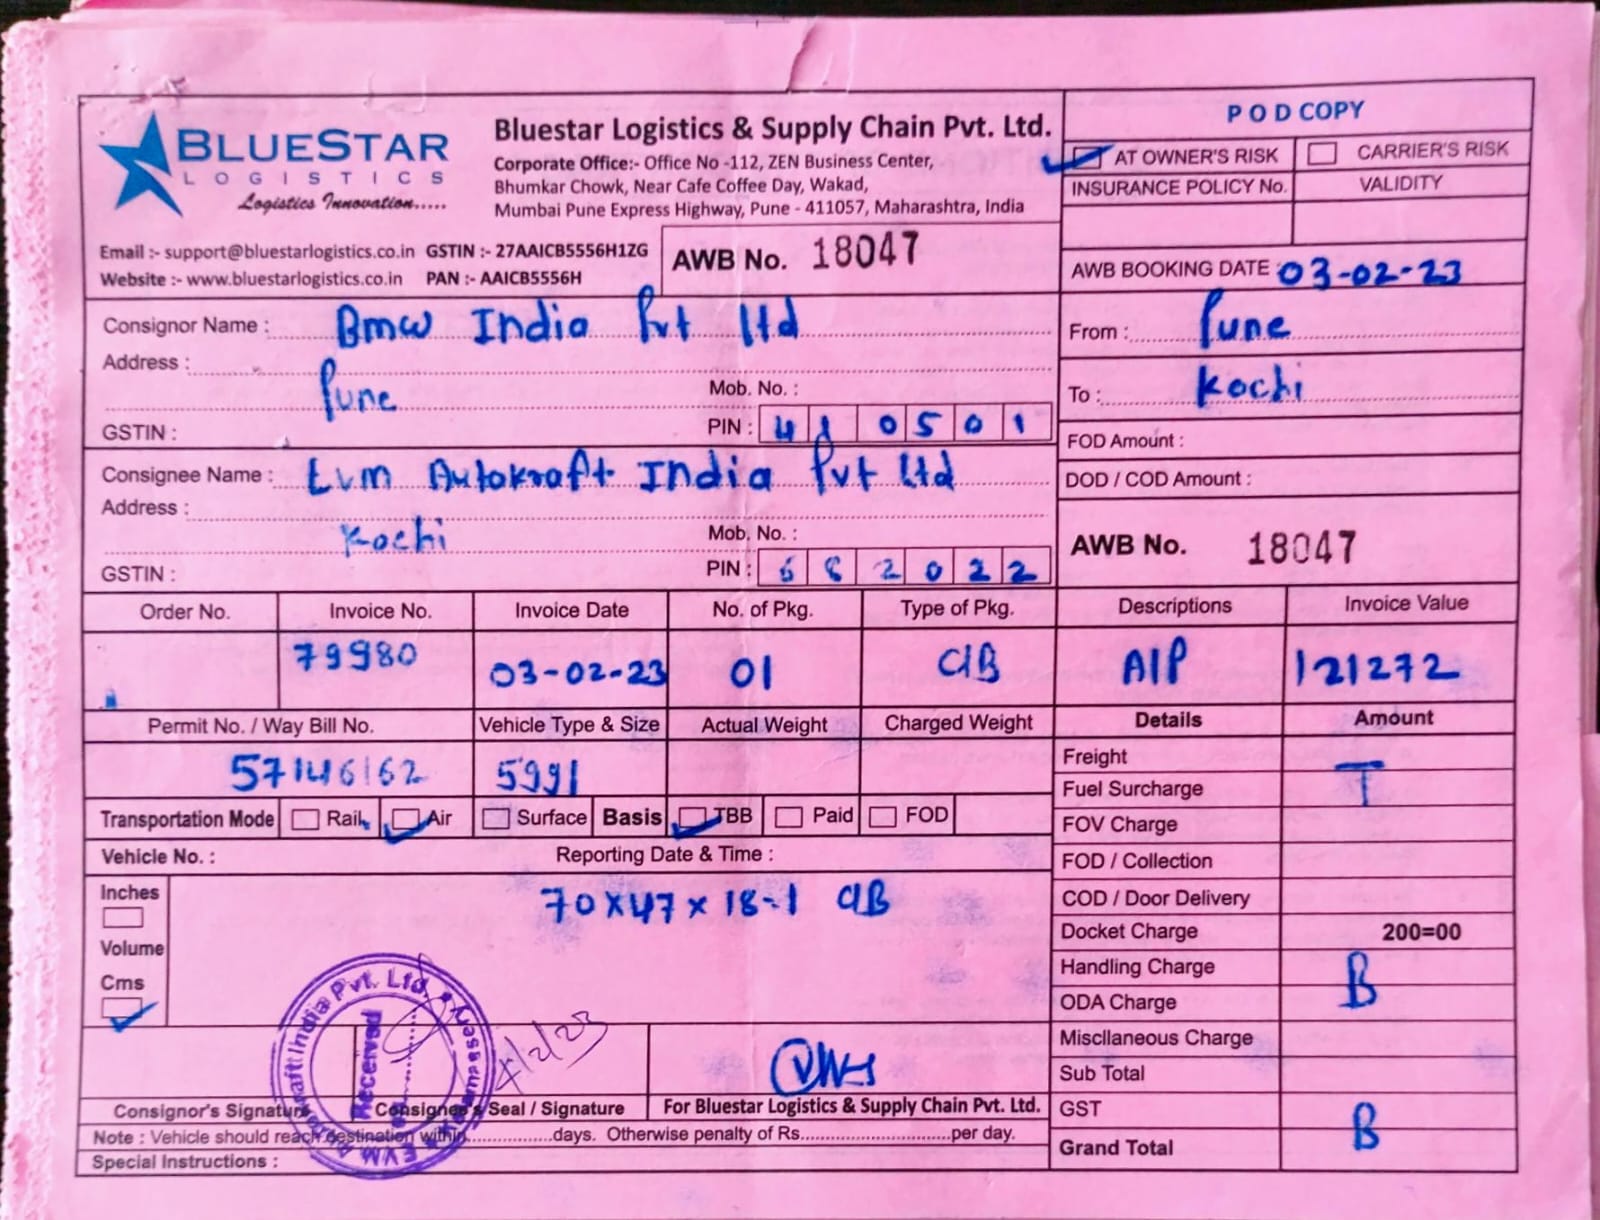 BLUESTAR
LOGISTICS
Logistics Innovation.....
Bluestar Logistics & Supply Chain Pvt. Ltd.
Corporate Office:- Office No -112, ZEN Business Center,
Bhumkar Chowk, Near Cafe Coffee Day, Wakad,
Mumbai Pune Express Highway, Pune - 411057, Maharashtra, India
Email :- support@bluestarlogistics.co.in GSTIN :- 27AAICB5556H1ZG
Website :- www.bluestarlogistics.co.in PAN :- AAICB5556H
AWB No. 18047
POD COPY
AT OWNER'S RISK CARRIER'S RISK
INSURANCE POLICY No. VALIDITY
AWB BOOKING DATE : 03-02-23
Consignor Name : Bmw India Pvt ltd
Address :
Pune
Mob. No. :
GSTIN : PIN : 410501
From : Pune
To : Kochi
FOD Amount :
DOD / COD Amount :
Consignee Name : Evm Autokraft India Pvt Ltd
Address :
Kochi
Mob. No. :
GSTIN : PIN : 682022
AWB No. 18047
Order No. Invoice No. Invoice Date No. of Pkg. Type of Pkg. Descriptions Invoice Value
79980 03-02-23 01 C/B A/P 121272
Permit No. / Way Bill No. Vehicle Type & Size Actual Weight Charged Weight Details Amount
57146162 5991
Transportation Mode Rail Air Surface Basis TBB Paid FOD
Vehicle No. : Reporting Date & Time :
Inches
Volume
Cms
70x47x18-1 C/B
Freight
Fuel Surcharge T
FOV Charge
FOD / Collection
COD / Door Delivery
Docket Charge 200=00
Handling Charge B
ODA Charge
Miscllaneous Charge
Sub Total
GST B
Grand Total
Received
4/2/23
Consignor's Signature Consignee's Seal / Signature For Bluestar Logistics & Supply Chain Pvt. Ltd.
Note : Vehicle should reach destination within..................days. Otherwise penalty of Rs................................per day.
Special Instructions :